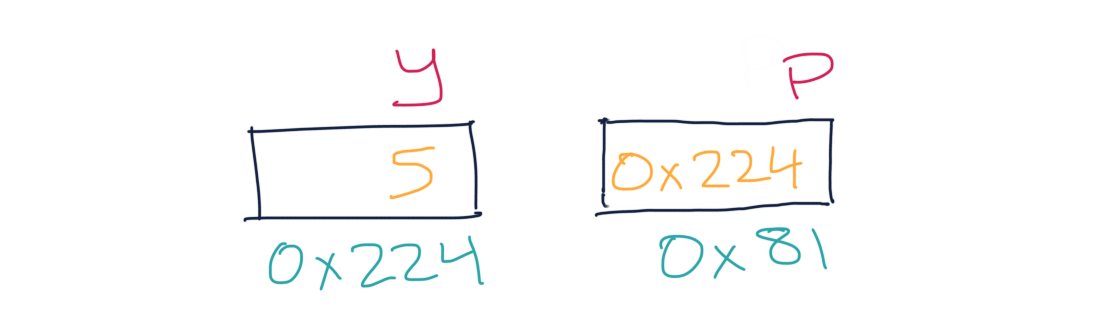 y P
5 0x224
0x224 0x81